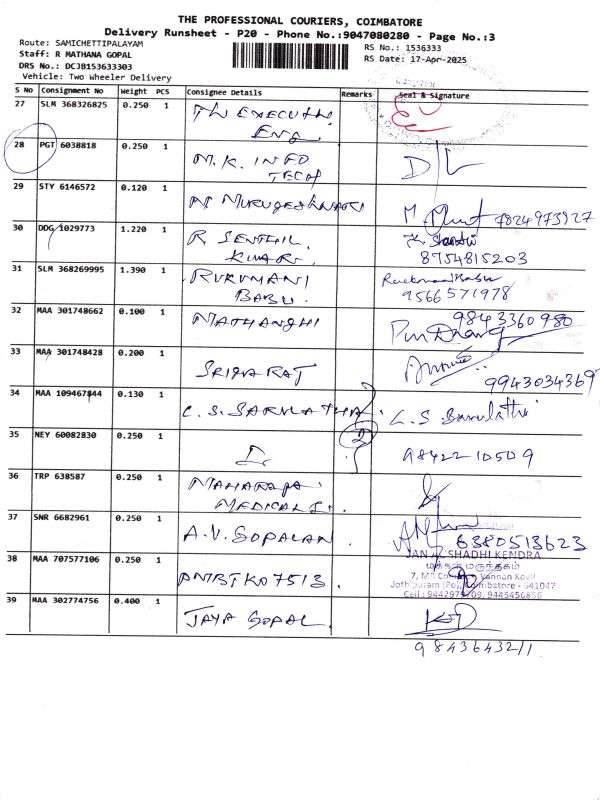 THE PROFESSIONAL COURIERS, COIMBATORE
Delivery Runsheet - P20 - Phone No.:9047080280 - Page No.:3
Route: SAMICHETTIPALAYAM
RS No.: 1536333
Staff: R MATHANA GOPAL
RS Date: 17-Apr-2025
DRS No.: DCJB153633303
Vehicle: Two Wheeler Delivery
S No Consignment No Weight PCS Consignee Details Remarks Seal & Signature
27 SLM 368326825 0.250 1 THE EXECUTIVE
ENG.
28 PGT 6038818 0.250 1 M.K. INFO
TECH
29 STY 6146572 0.120 1 M
M. 7824973927
30 DDG 1029773 1.220 1 R SENTHIL
KUMAR.
8754815203
31 SLM 368269995 1.390 1 RUKUMANI
BABU.
9566571978
32 MAA 301748662 0.100 1 MATHANGHI
9843360980
33 MAA 301748428 0.200 1
9943034369
34 MAA 109467844 0.130 1 C.S. SARULATHA C.S
2
35 NEY 60082830 0.250 1
98422 10509
36 TRP 638587 0.250 1 MAHARAJA
MEDICALS.
37 SNR 6682961 0.250 1 A.V. GOPALAN
6380513623
JAN AUSHADHI KENDRA
மக்கள் மருந்தகம்
Vannan Kovil
Jothipuram (Po), Coimbatore - 641047
Cell : 9445456856
38 MAA 707577106 0.250 1 PNTBTK07513.
39 MAA 302774756 0.400 1 JAYA GOPAL.
9843643211